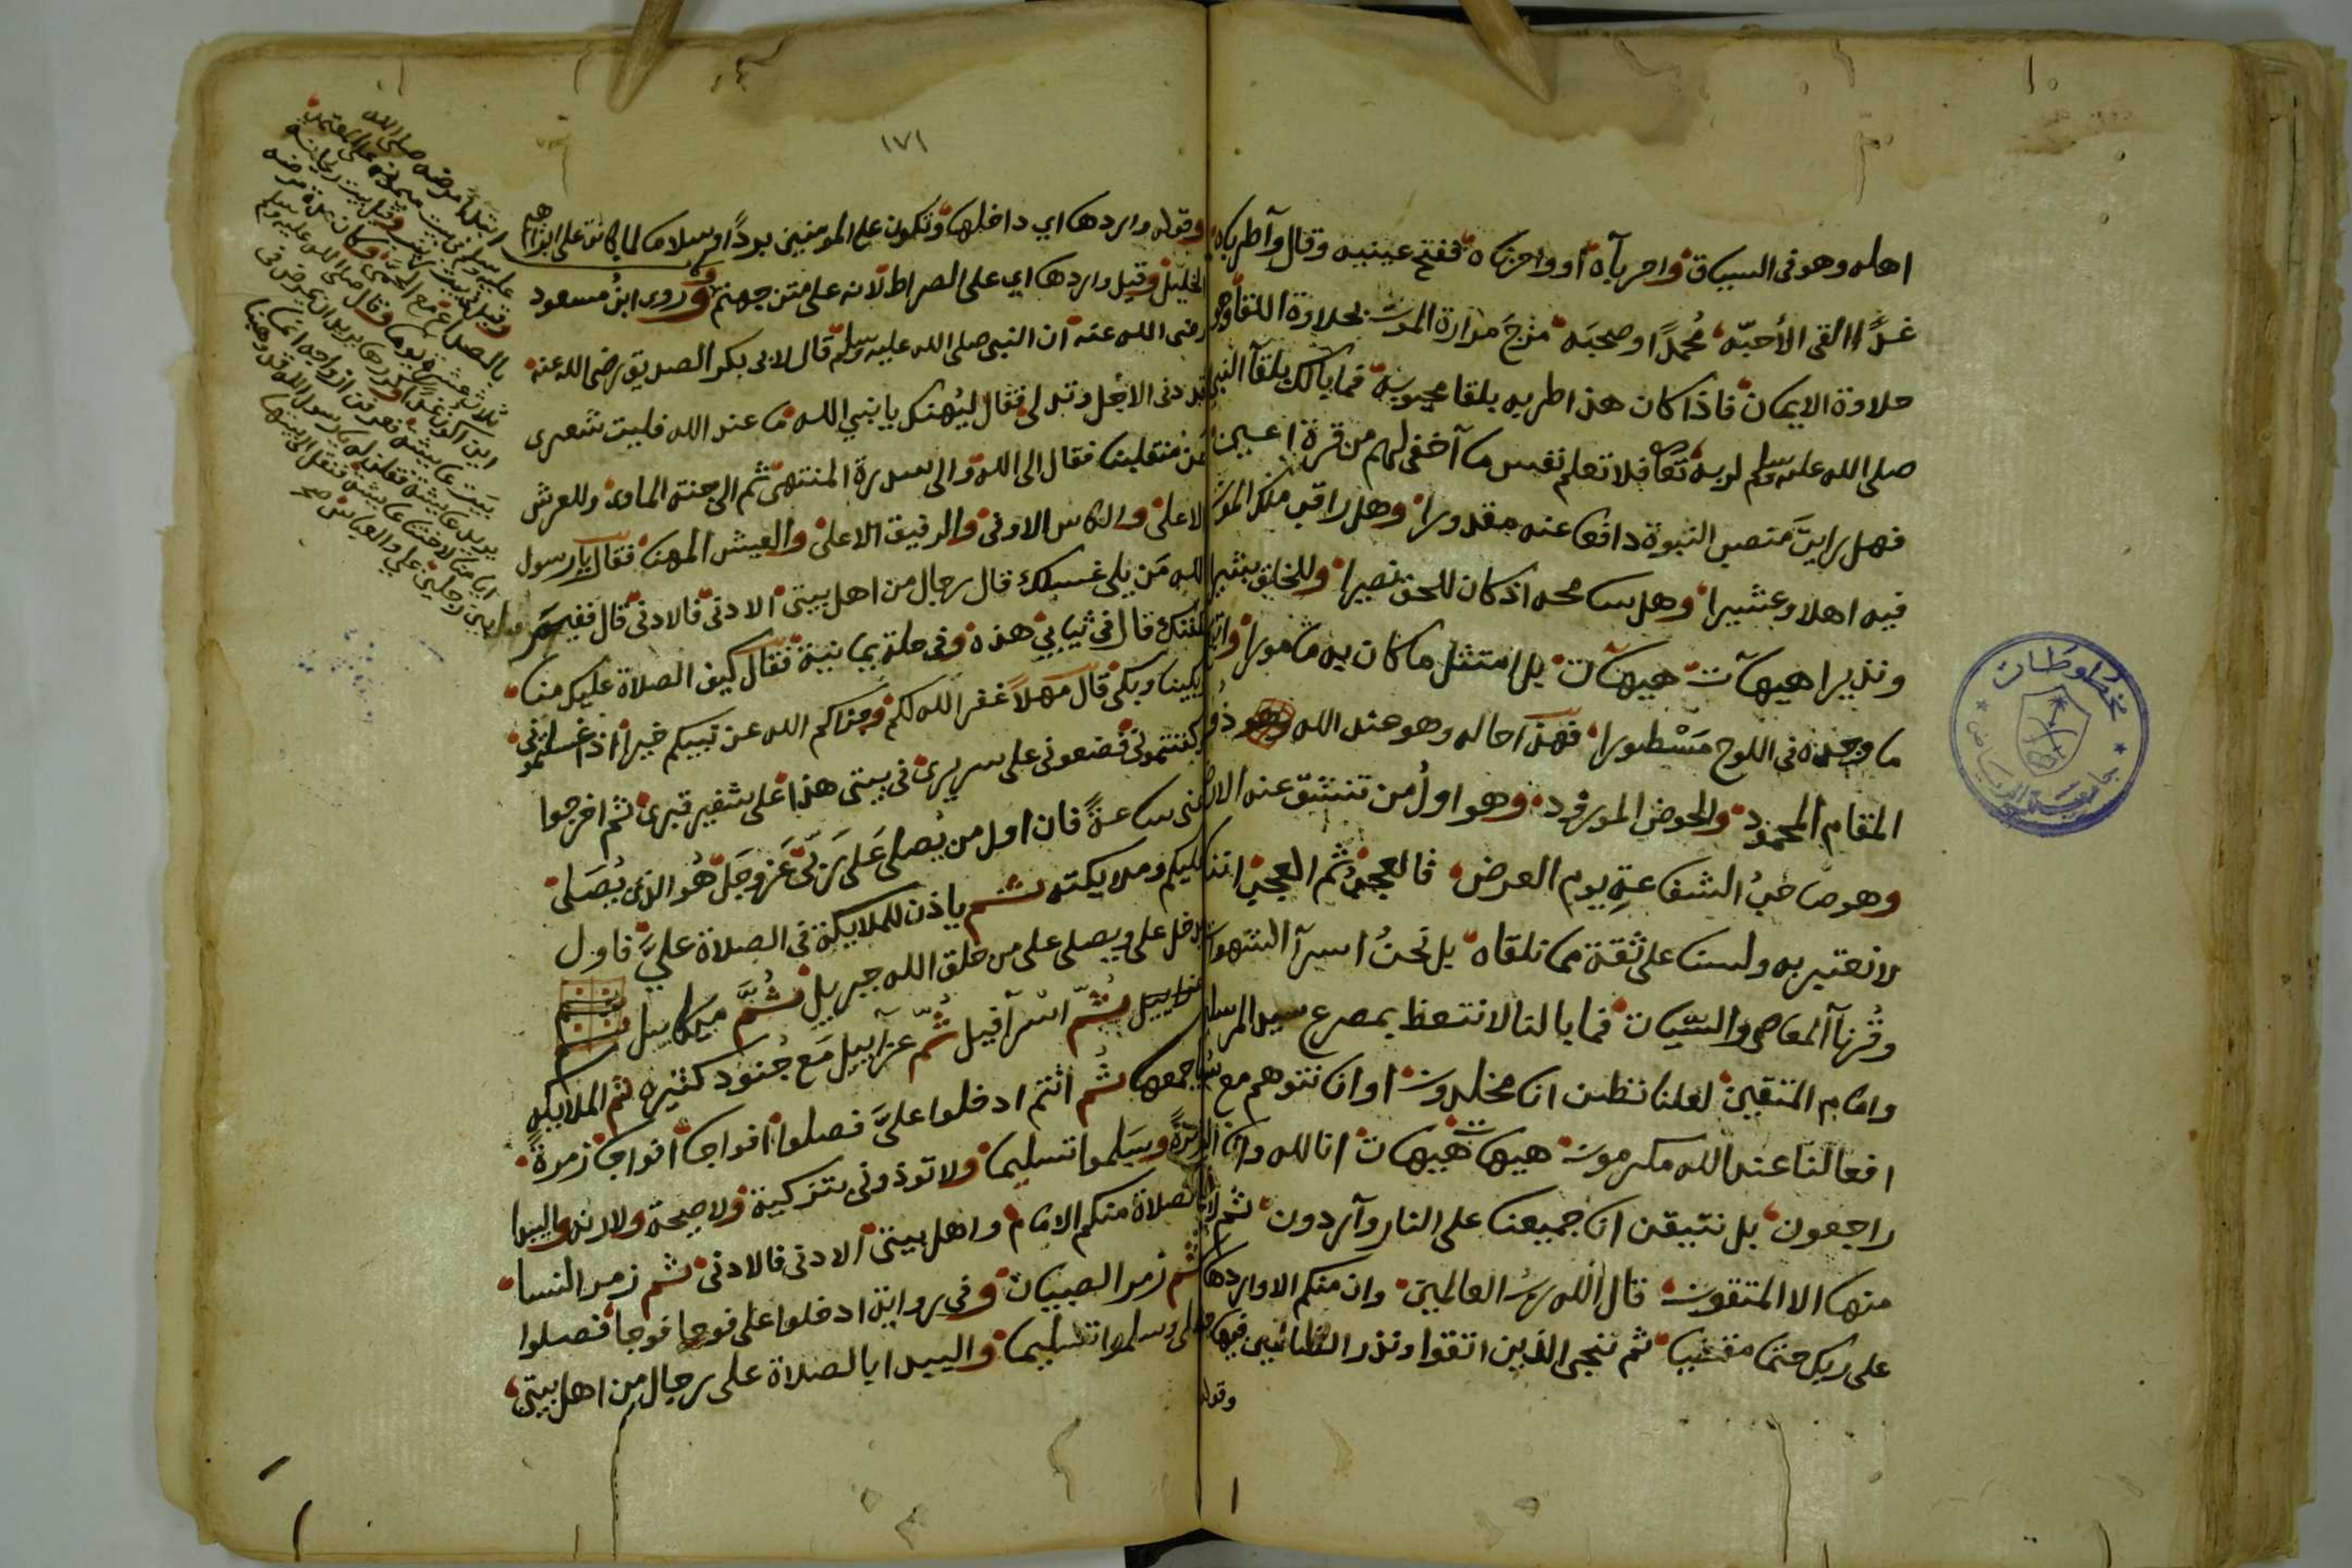 اهله وهو فى السياق واحرباه او واحزناه ففتح عينيه وقال واطرباه
غدًا القى الأحبّه محمدًا وصحبَه مزجَ مرارة الموت بحلاوة اللقا وهو
حلاوة الايمان فاذا كان هذا طربه بلقا محبوبه فما بالك بلقآ النبي
صلى الله عليه وسلم لربه تعا فلا تعلم نفس ما آخفى لهم من قرة اعين
فهل رايتَ منصب النبوة دافعا عنه مقدورا وهل راقب ملك الموت
فيه اهلا وعشيرا وهل سامحه اذ كان للحق نصيرا وللخلق بشيرا
ونذيرا هيهآت هيهآت بل امتثل ما كان به مامورا واتبع
ما وجده فى اللوح مَسْطورا فهذا حاله وهو عند الله ذُو
المقام المحمود والحوض المورود وهو اولُ من تنشق عنه الارض
وهو صاحبُ الشفاعةِ يوم العرض فالعجبُ ثم العجبُ اننا
لا نعتبر به ولسنا على ثقة مما نلقاه بل نحنُ اسرآ الشهوات
وقُرنآ المعاصى والسّيّات فما بالنا لا نتعظ بمصرع سيد المرسلين
وامام المتقين لعلنا نظن اننا مخلدون او اننا نتوهم مع سُو
افعالنا عند الله مكرمون هيهات هيهات انا لله وانا اليه
راجعون بل نتيقن اننا جميعنا على النار وآردون ثم لا
منها الا المتقون قال الله ربُ العالمين وان منكم الا واردها كان
على ربك حتما مقضيا ثم ننجى الذين اتقوا ونذر الظالمين فيها جثيا
وقوله
١٧١
وقوله واردها اي داخلها وتكون على المومنين بردًا وسلاما كما كانت على ابراهيم
الخليل وقيل واردها اي على الصراط لانه على متن جهنم وروى ابنُ مسعود
رضى الله عنه ان النبى صلى الله عليه وسلم قال لابى بكر الصديق رضى الله عنه
قد دنى الاجل وتدلى فقال ليُهنك يا نبي الله ما عند الله فليت شعرى
عن مُنقلبنا فقال الى الله والى سدرة المنتهى ثم الى جنة الماوى وللعرش
الاعلى والكاس الاوفى والرفيق الاعلى والعيش المهنا فقال يا رسول
الله مَن يلى غسلك قال رجال من اهل بيتى الادنى فالادنى قال ففيم
نكفنك قال فى ثيابي هذه وفى حلة يمانية فقال كيف الصلاة عليك منا
وبكينا وبكى قال مَهلاً غفر الله لكم وجزاكم الله عن نبيكم خيرا اذا غسلتمونى
وكفنتمونى فضعونى على سريرى فى بيتى هذا على شفير قبرى ثم اخرجوا
عنى ساعةً فان اول من يُصلى عَلى رَبّى عَز وجَلّ هُو الذى يُصَلى
عليكم وملايكته ثم ياذن للملايكة فى الصلاة عليَّ فاول
من يدخل على ويصلى على من خلق الله جبريل ثُمَّ ميكاييل
ثُمّ اسْرآفيل ثُمّ عزرآييل مَع جُنود كثيره ثم الملايكه
باجمعها ثُم انتم ادخلوا علىَّ فصلوا افواجا افواجا زمرةً
زمرةً وسَلموا تسليما ولا توذونى بتزكية ولا صيحة ولا رنه وليبدا
بالصلاة منكم الامام واهل بيتى الادنى فالادنى ثم زمر النسا
ثم زمر الصبيان وفى رواية ادخلوا على فوجا فوجا فصلوا
على وسلموا تسليما وليبدا بالصلاة على رجال من اهل بيتى
ابتدأ مرضه صلى الله
عليه وسلم فى بيت ميمونه على المعتمد
وقيل فى بيت زينب وقيل بيت ريحانة
بالصداع مع الحمى وكان مدة مرضه
ثلاث عشرة يوما وقال صلى الله عليه وسلم
اين اكون غدًا وكررها يريد ان يمرض فى
بيت عايشة فعرفن ازواجه انما
يريد عايشة فقلن له يا رسول الله قد وهبنا
ايامنا لاختنا عايشة فنقل الى بيتها
بين رجلين علي والعباس صح
مخطوطات
جامعة الرياض